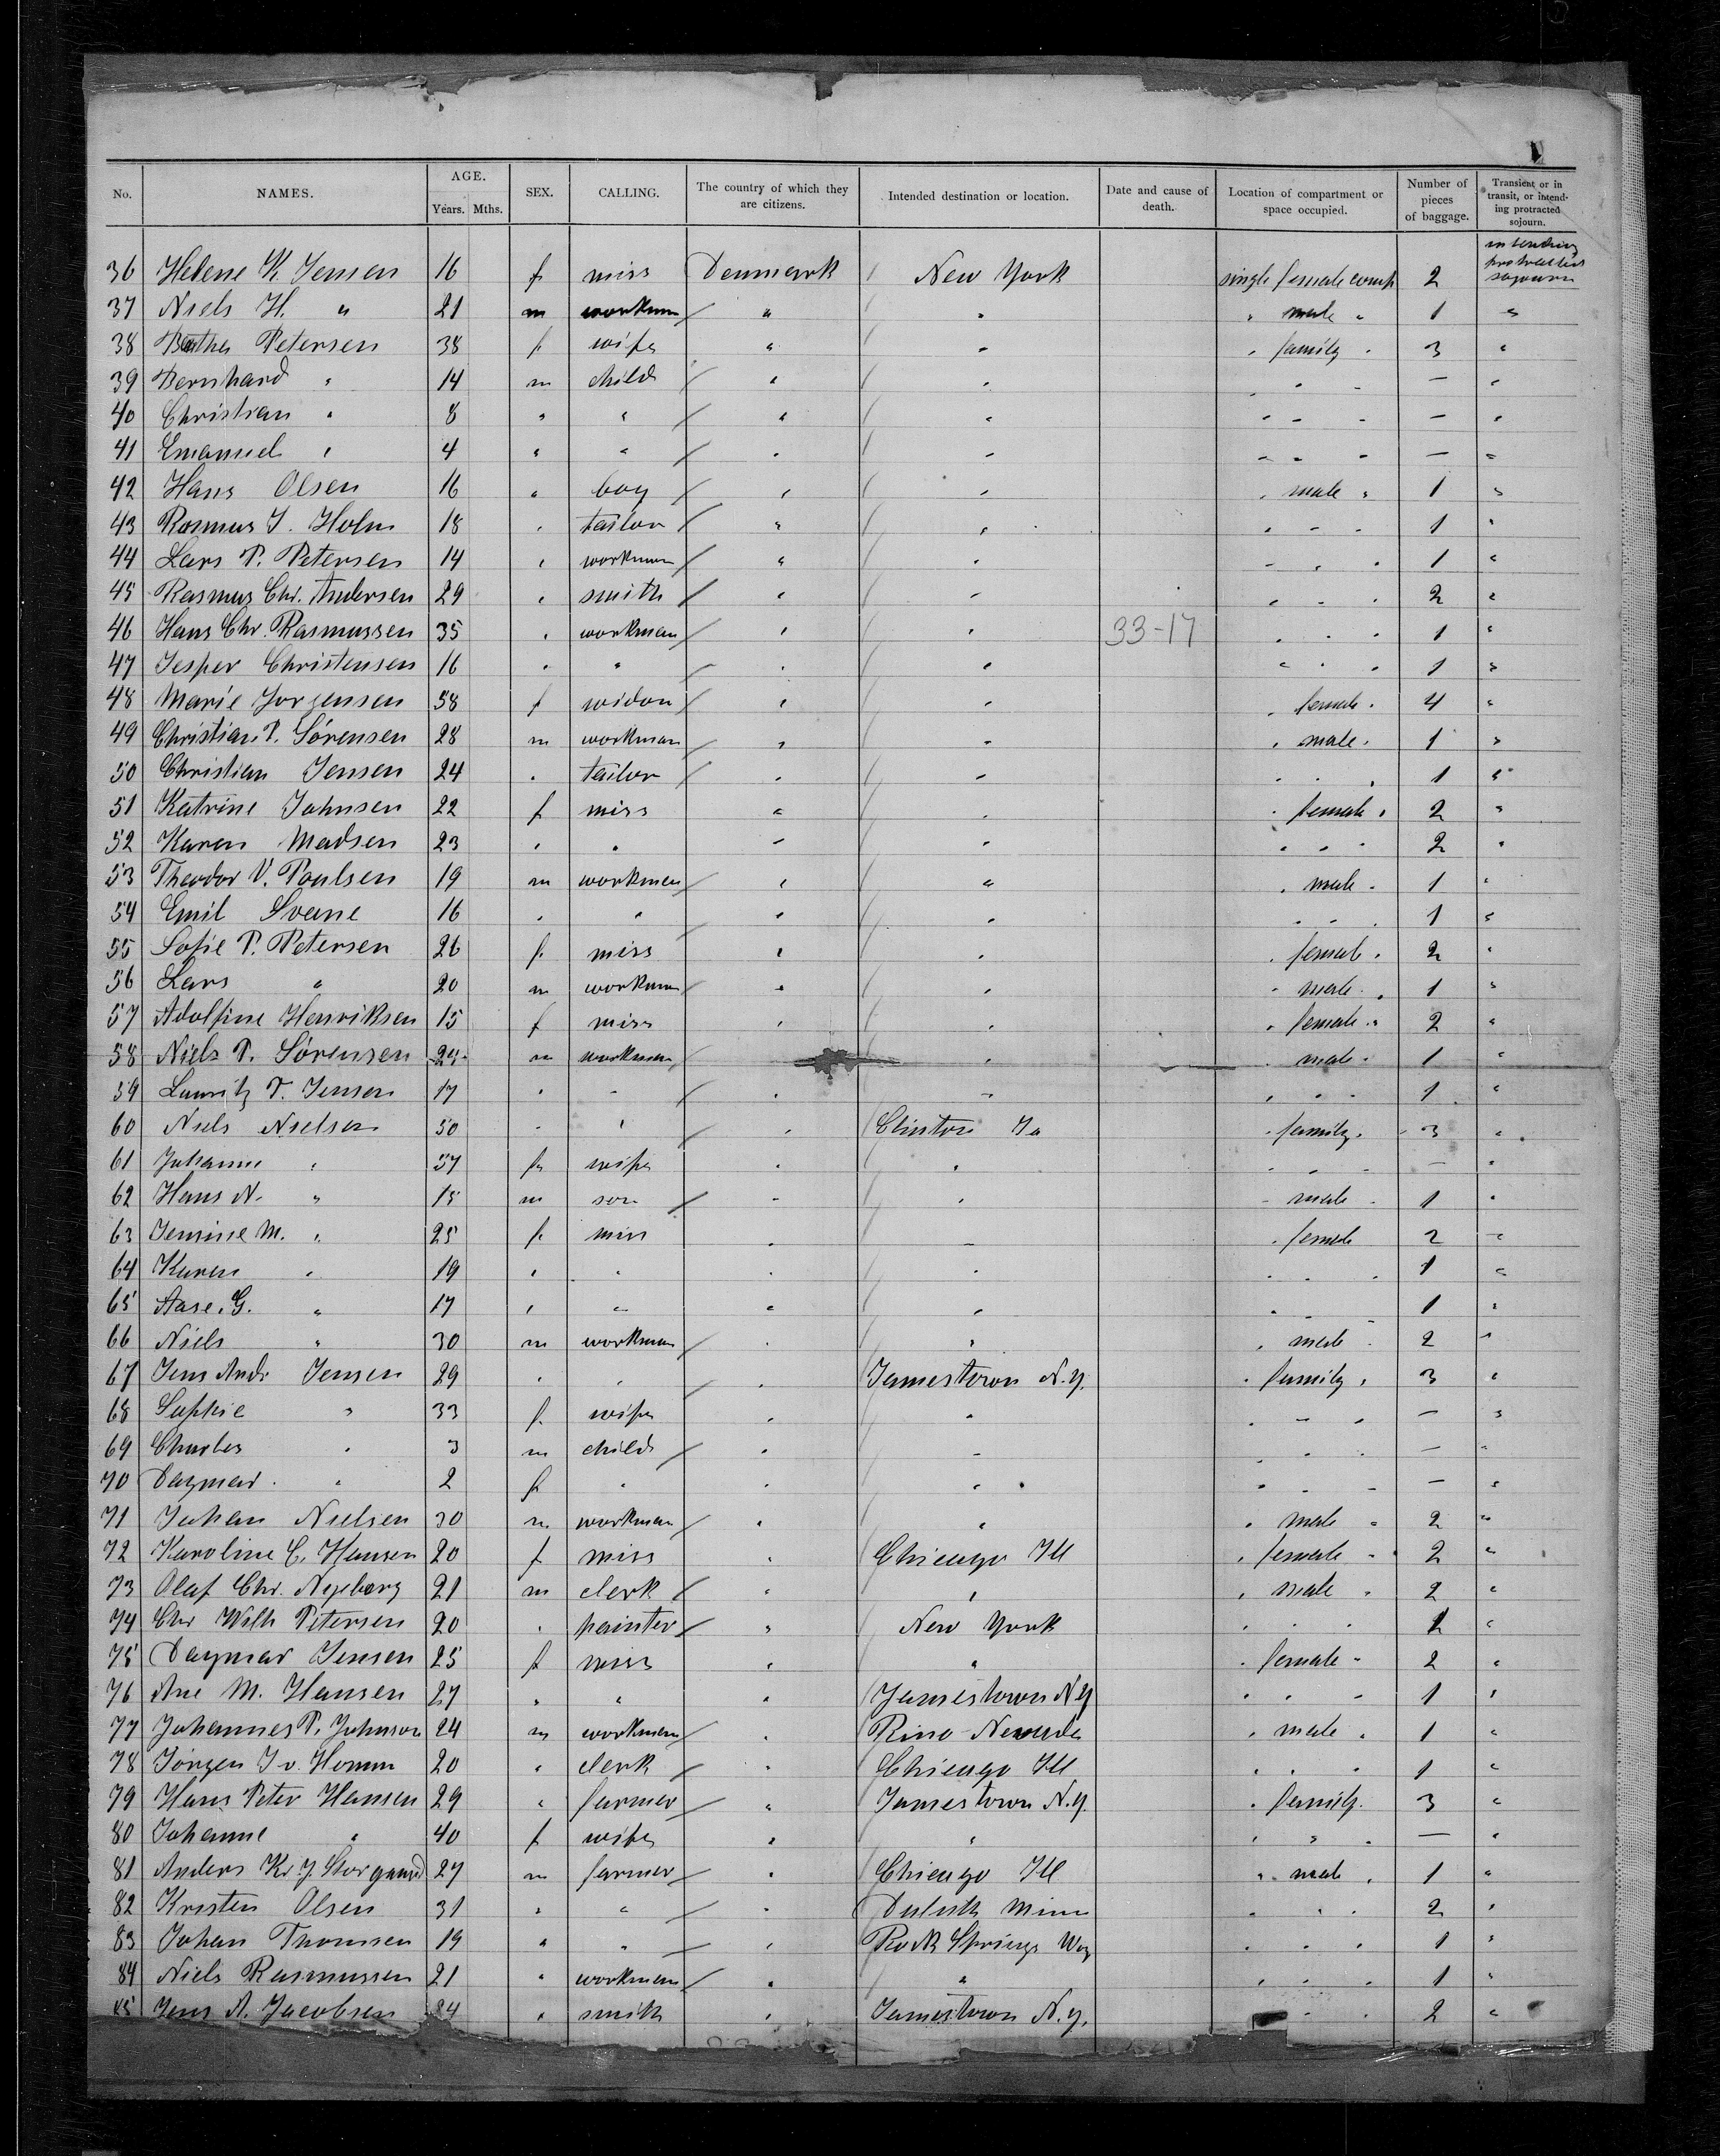 No. NAMES. AGE. Years. Mths. SEX. CALLING. The country of which they are citizens. Intended destination or location. Date and cause of death. Location of compartment or space occupied. Number of pieces of baggage. Transient or in transit, or intending protracted sojourn.
36 Helene K. Jensen 16 f miss Denmark New York single female comp 2 intending protracted sojourn
37 Niels H. " 21 m workman " " " male " 1 "
38 Petersen 38 f wife " " " family " 3 "
39 Bernhard " 14 m child " " " " " — "
40 Christian " 8 " " " " " " " — "
41 Emanuel " 4 " " " " " " " — "
42 Hans Olsen 16 " boy " " " male " 1 "
43 Rasmus J. Holm 18 " tailor " " " " " 1 "
44 Lars P. Petersen 14 " workman " " " " " 1 "
45 Rasmus Chr. Andersen 29 " smith " " " " " 2 "
46 Hans Chr. Rasmussen 35 " workman " " 33-17 " " " 1 "
47 Jesper Christensen 16 " " " " " " " 1 "
48 Marie Jorgensen 58 f widow " " " female " 4 "
49 Christian P. Sörensen 28 m workman " " " male " 1 "
50 Christian Jensen 24 " tailor " " " " " 1 "
51 Katrine Johnsen 22 f miss " " " female " 2 "
52 Karen Madsen 23 " " " " " " " 2 "
53 Theodor V. Poulsen 19 m workman " " " male " 1 "
54 Emil Svane 16 " " " " " " " 1 "
55 Sofie P. Petersen 26 f. miss " " " female " 2 "
56 Lars " 20 m workman " " " male " 1 "
57 Adolfine Henriksen 15 f miss " " " female " 2 "
58 Niels P. Sörensen 24 m workman " " male " 1 "
59 Lauritz P. Jensen 17 " " " " " " " 1 "
60 Niels Nielsen 50 " " " Clinton Ia " family " 3 "
61 Johanne " 57 f wife " " " " " — "
62 Hans N. " 15 m son " " " male " 1 "
63 Jensine M. " 25 f. miss " " " female 2 "
64 Karen " 19 " " " " " " " 1 "
65 Aase. G. " 17 " " " " " " " 1 "
66 Niels " 30 m workman " " " male " 2 "
67 Jens Andr Jensen 29 " " " Jamestown N.y. " family " 3 "
68 Sophie " 33 f. wife " " " " " — "
69 Charles " 3 m child " " " " " — "
70 Dagmar " 2 f " " " " " " — "
71 Johan Nielsen 30 m workman " " " male " 2 "
72 Karoline C. Hansen 20 f miss " Chicago Ill " female " 2 "
73 Olaf Chr. Nyeborg 21 m clerk " " " male " 2 "
74 Chr Wilh Petersen 20 " painter " New York " " " 1 "
75 Dagmar Jensen 25 f miss " " " female " 2 "
76 Ane M. Hansen 27 " " " Jamestown N.y " " " 1 "
77 Johannes P. Johnson 24 m workman " Rino-Nevada " male " 1 "
78 Jörgen J v. Homm 20 " clerk " Chicago Ill " " " 1 "
79 Hans Peter Hansen 29 " farmer " Jamestown N.y. " family. 3 "
80 Johanne " 40 f wife " " " " " — "
81 Anders Kr. J. Storgaard 27 m farmer " Chicago Ill " male " 1 "
82 Kristen Olsen 31 " " " Duluth Minn " " " 2 "
83 Johan Thomsen 19 " " " Rock Springs Wy " " " 1 "
84 Niels Rasmussen 21 " workman " " " " " 1 "
85 Jens A. Jacobsen 24 " smith " Jamestown N.y. " " 2 "